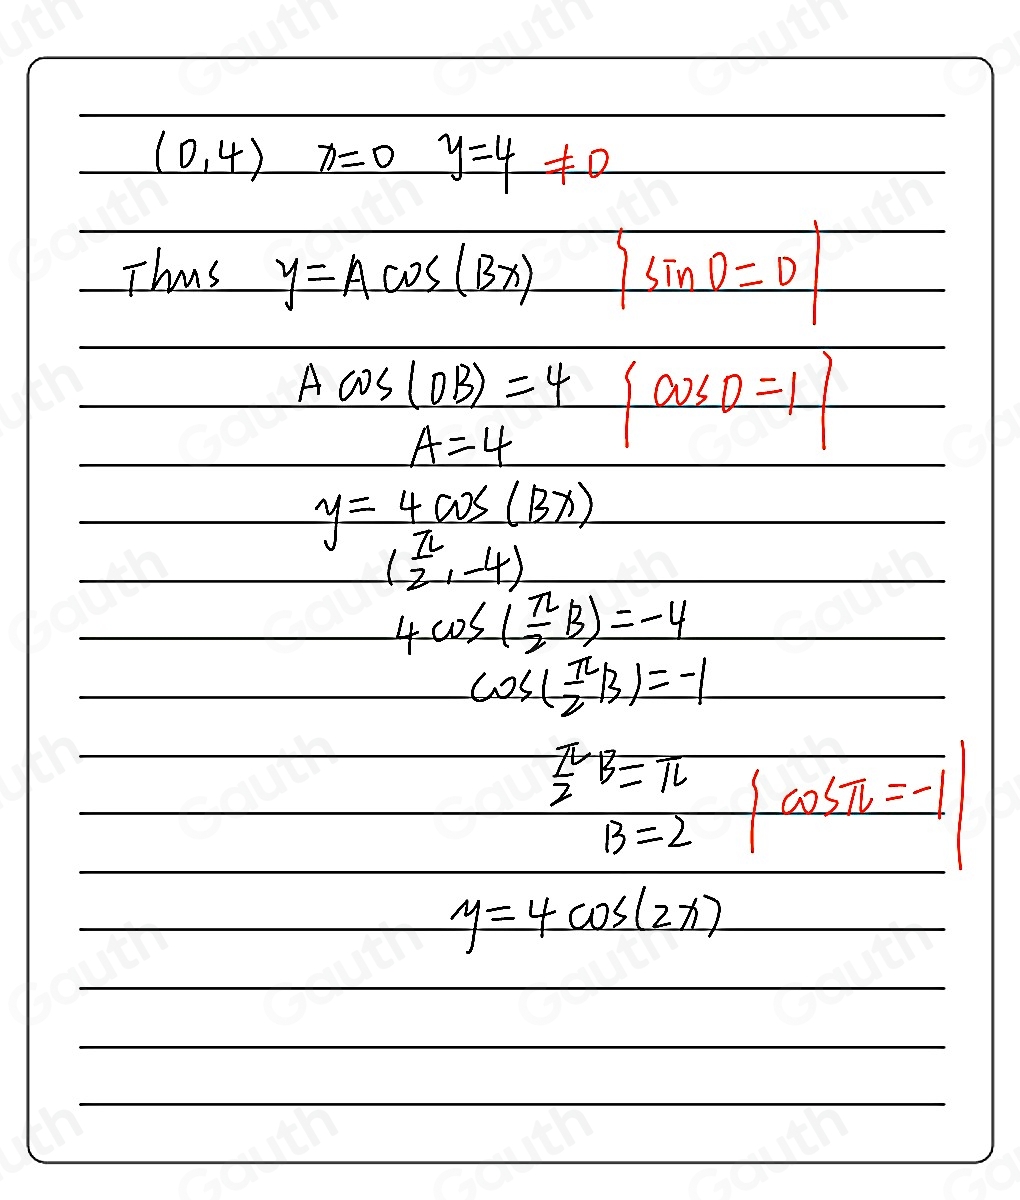 (0,4) x=0 y=4 ≠0
Thus y=A cos(Bx) {sin0=0|
A cos(0B)=4 {cos0=1|
A=4
y=4cos(Bx)
(π/2,-4)
4cos(π/2 B)=-4
cos(π/2 B)=-1
π/2 B=π {cosπ=-1|
B=2
y=4cos(2x)
Gauth